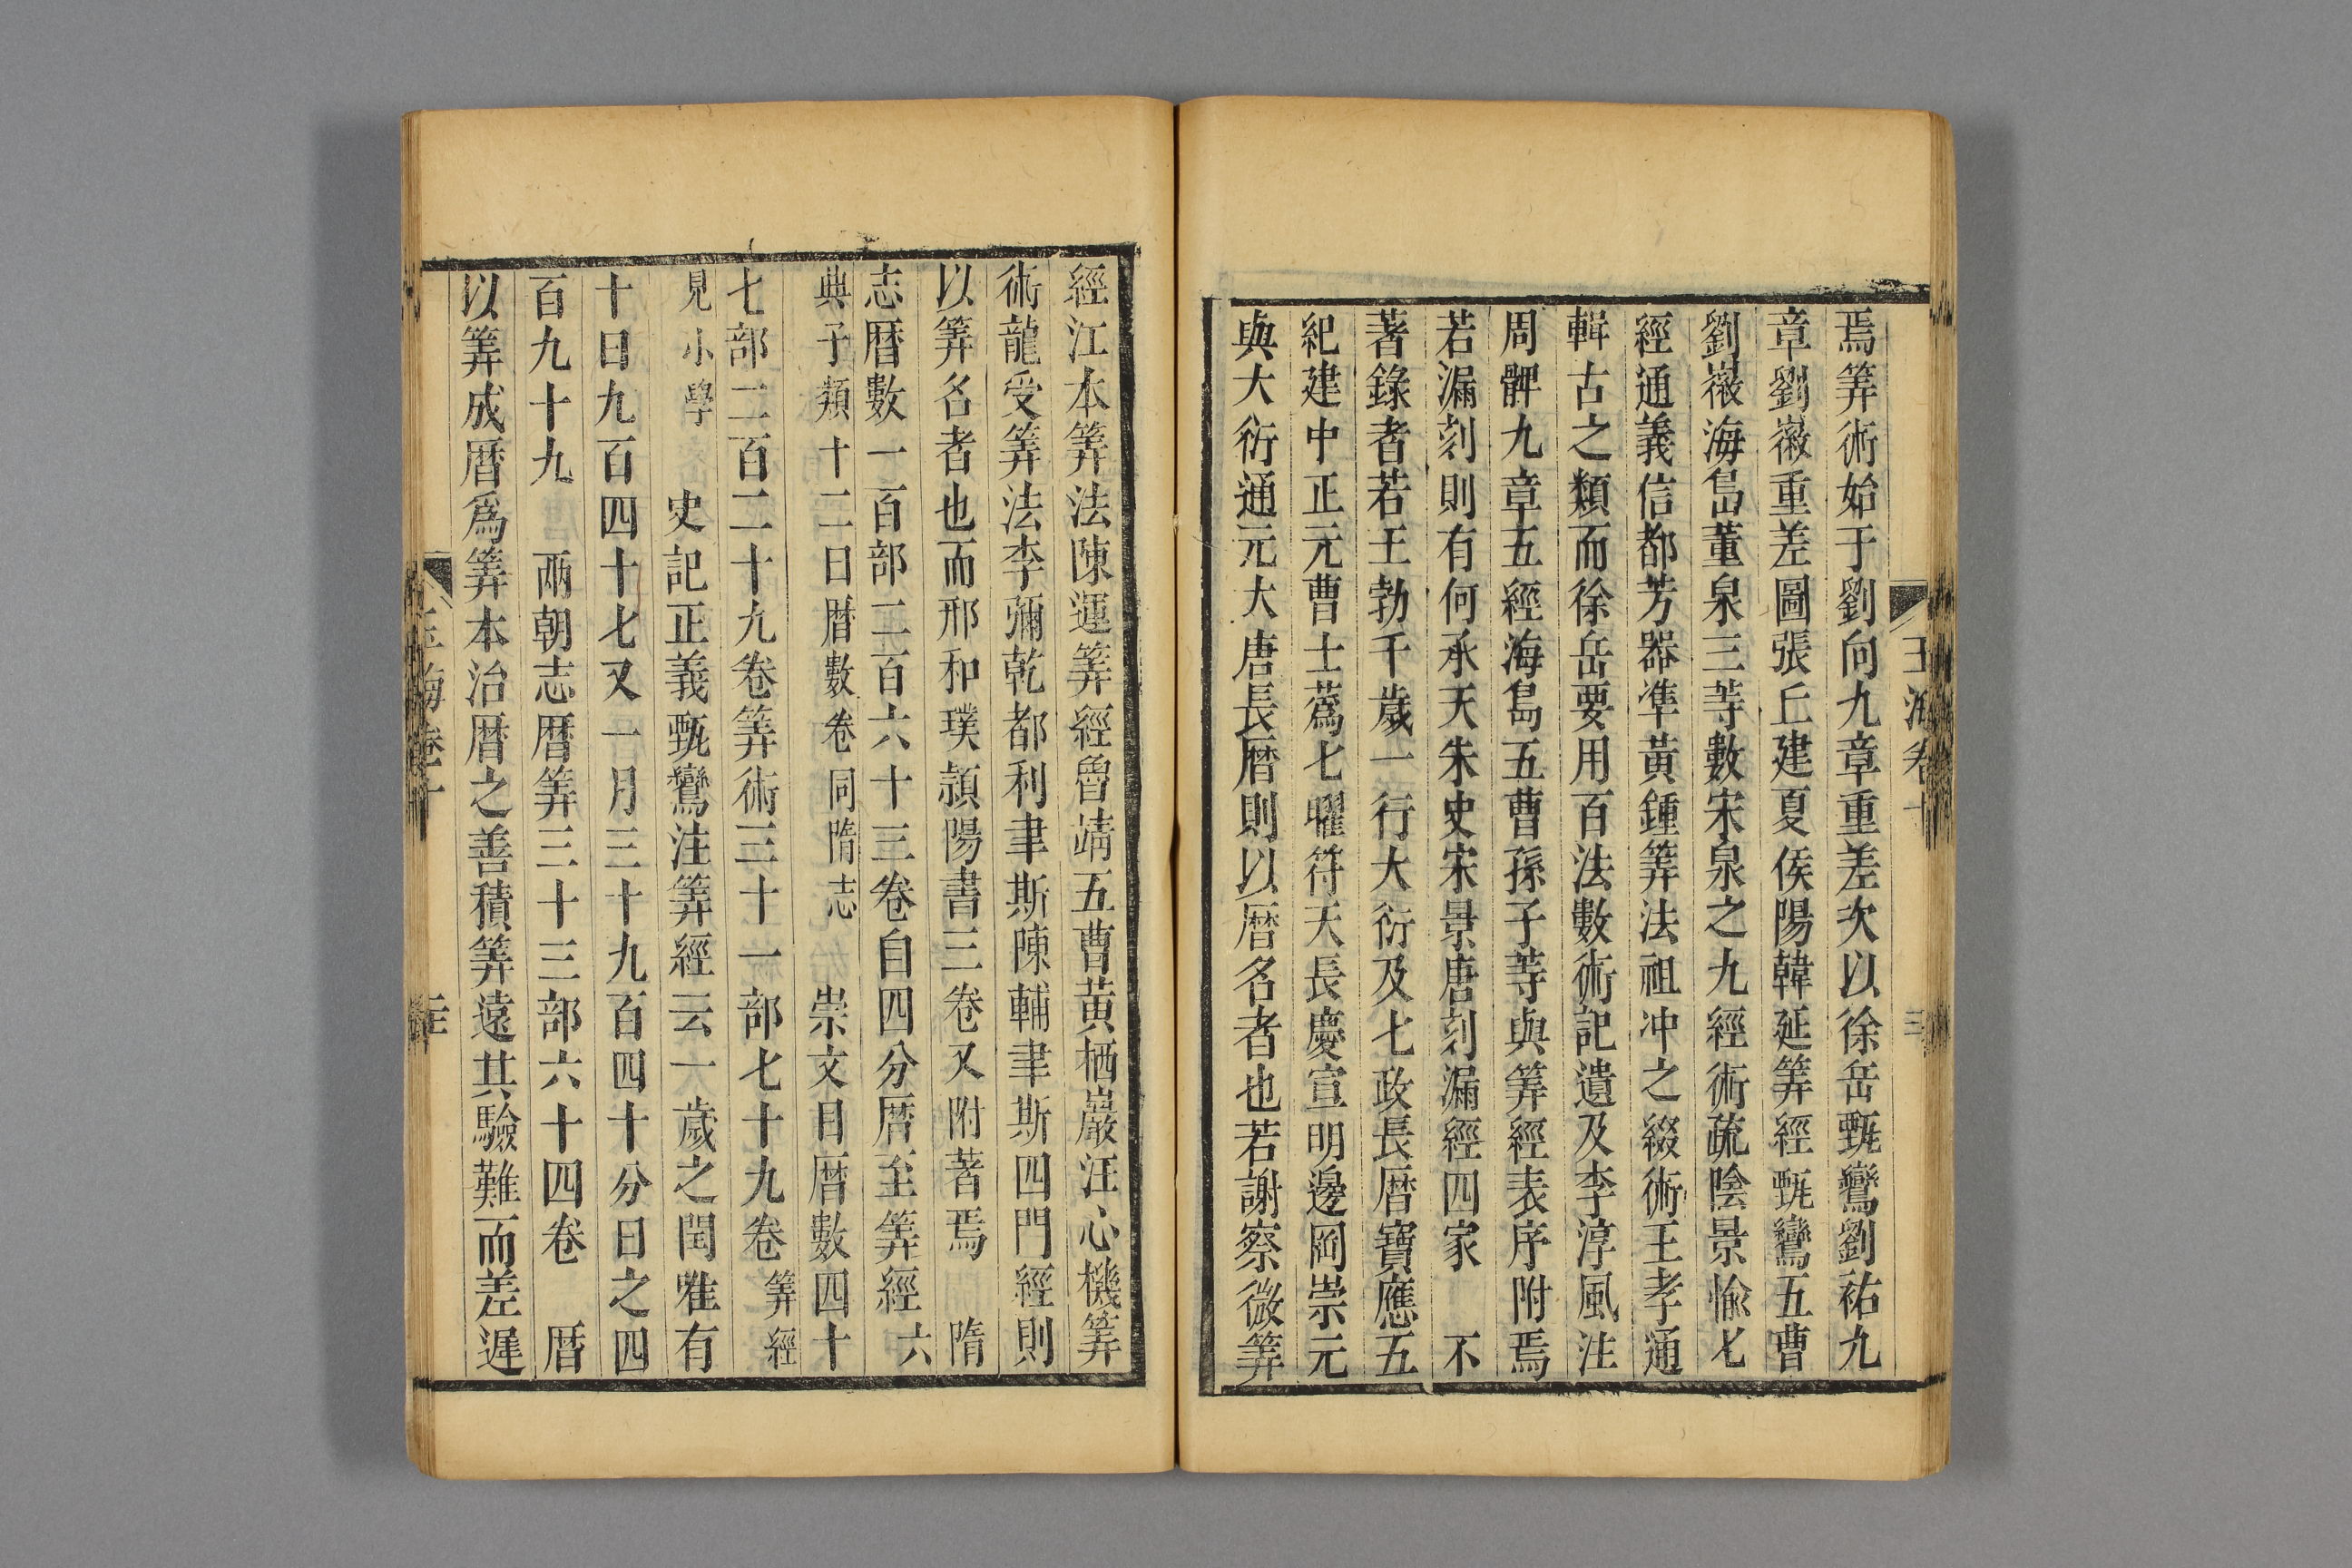 焉筭術始于劉向九章重差次以徐岳甄鸞劉祐九
章劉徽重差圖張丘建夏侯陽韓延筭經甄鸞五曹
劉徽海島董泉三等數宋泉之九經術疏陰景愉七
經通義信都芳器準黃鍾筭法祖冲之綴術王孝通
輯古之類而徐岳要用百法數術記遺及李淳風注
周髀九章五經海島五曹孫子等與筭經表序附焉
若漏刻則有何承天朱史宋景唐刻漏經四家 不
著錄者若王勃千歲一行大衍及七政長曆寶應五
紀建中正元曹士蔿七曜符天長慶宣明邊岡崇元
與大衍通元大唐長曆則以曆名者也若謝察微筭
經江本筭法陳運筭經魯靖五曹黃栖巖汪心機筭
術龍受筭法李彌乾都利聿斯陳輔聿斯四門經則
以筭名者也而邢和璞潁陽書三卷又附著焉 隋
志曆數一百部二百六十三卷自四分曆至筭經 六
典子類十二曰曆數卷同隋志 崇文目曆數四十
七部二百二十九卷筭術三十一部七十九卷 筭經
見小學 史記正義甄鸞注筭經云一歲之閏唯有
十日九百四十七又一月三十九百四十分日之四
百九十九 兩朝志曆筭三十三部六十四卷 曆
以筭成曆爲筭本治曆之善積筭遠其驗難而差遲
玉海卷十